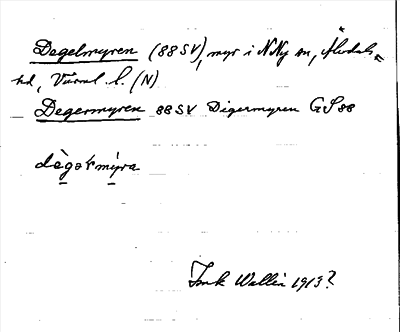 Degelmyren (88SV), myr i N Ny sn, Älvdals
hd, Värml l. (N)
Degermyren 88SV Digermyren GS88
dègərmýra
Wallin 1913?